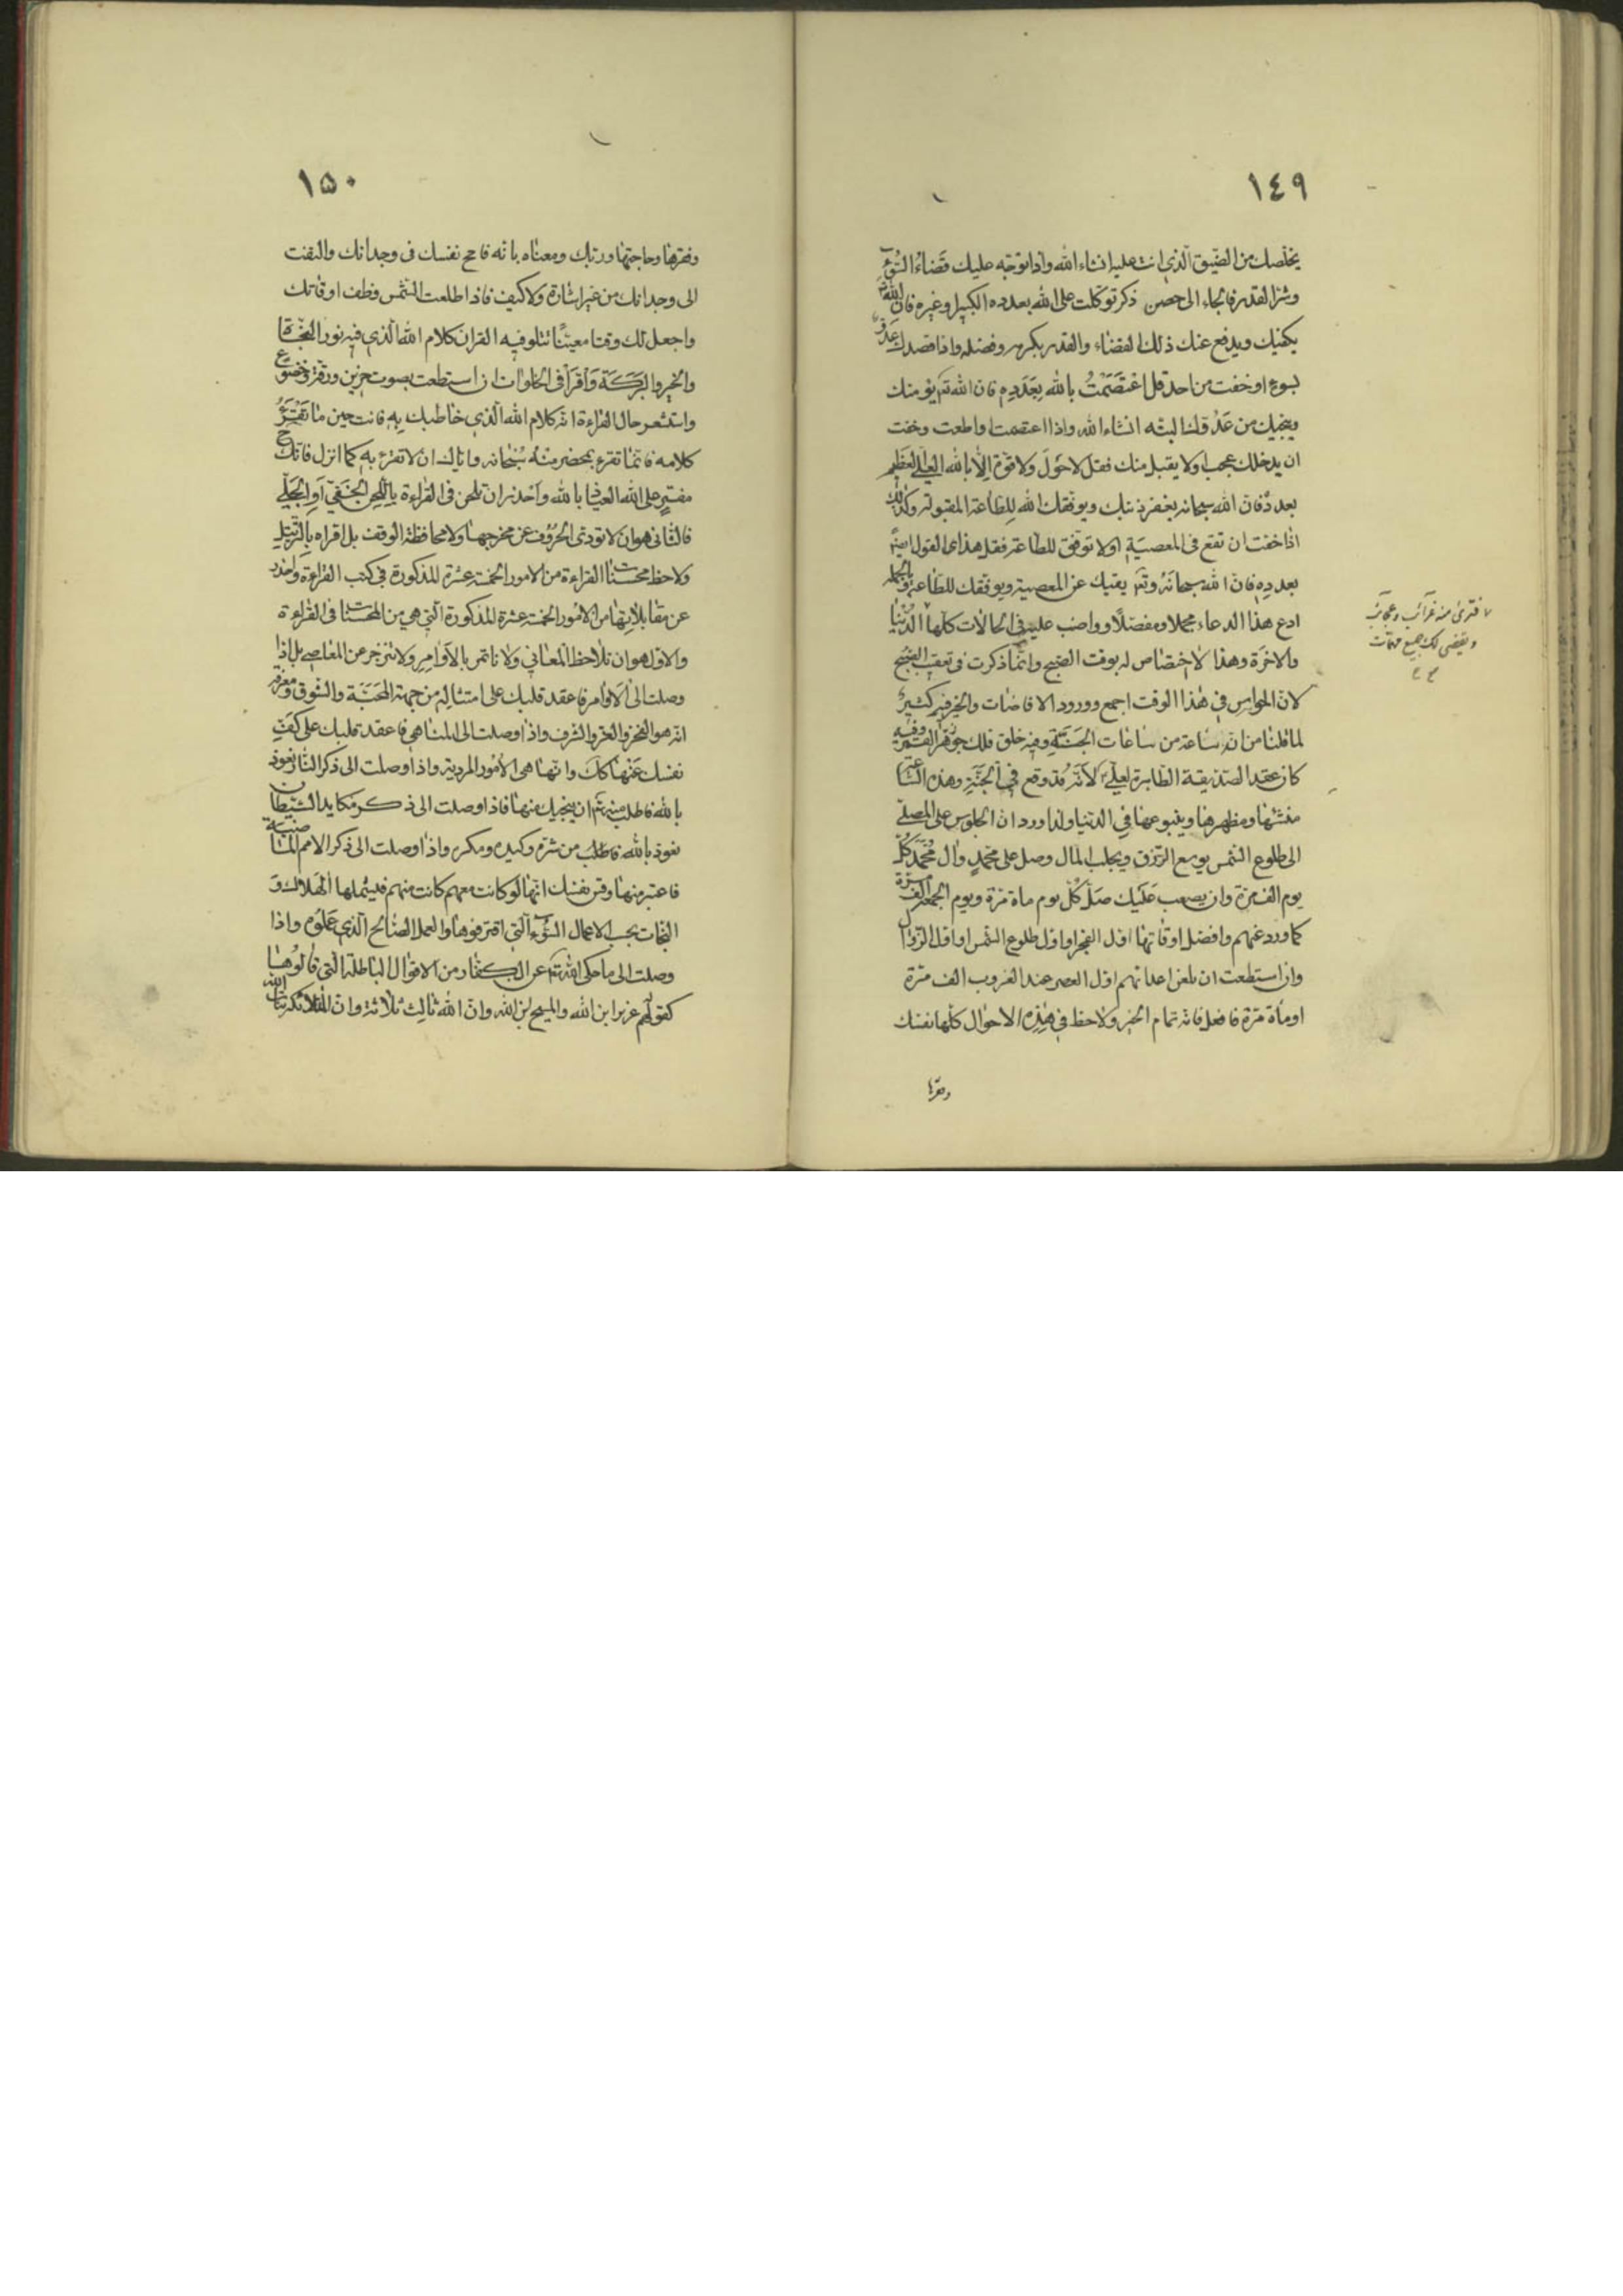 ١٤٩
يخلّصك من الضّيق الّذي انت عليه انشاء الله واذا توجّه عليك قضاء السّوء
وشرّ القدر فالجاء الى حصن ذكر توكّلت على الله بعدده الكبير او غيره فان الله تع
يكفيك ويدفع عنك ذلك القضاء والقدر بكرمه وفضله واذا قصدك عدوّ
بسوء او خفت من احد قل اعْتَصَمْتُ بالله بِعَدَدِهِ فان الله تع يؤمنك
وينجيك من عدوّك البتّه انشاء الله واذا اعتصمت واطعت وخفت
ان يدخلك عجب او لا يقبل منك فقل لاحول ولا قوّة الّا بالله العليّ العظيم
بعدده فانّ الله سبحانه يغفر ذنبك ويوفّقك الله للطّاعة المقبولة وكذلك
اذا خفت ان تقع فى المعصية او لا توفّق للطّاعة فقل هذا القول ايضً
بعدده فانّ الله سبحانه وتع يقيك عن المعصية ويوفّقك للطّاعة وبالجملة
ادع هذا الدعاء مجملا ومفصّلا وواضب عليه فى الحالات كلّها الدّنيا
والاخرة وهذا لا اختصاص له بوقت الصّبح وانّما ذكرت فى تعقيب الصّبح
لانّ الحواس في هذا الوقت اجمع وورود الافاضات والخير فيه كثير
لما قلنا من انّه ساعة من ساعات الجنّة وفيه خلق فلك جوزهر القمر وفيه
كان عقد الصّدّيقة الطّاهرة لعليّ ع لانّه قد وقع في الجنّة وهذه السّاعة
منشئها ومظهرها وينبوعها في الدّنيا ولذا ورد انّ الجلوس على المصلّى
الى طلوع الشّمس يوسع الرّزق ويجلب المال وصل على محمّد وال محمّد كلّ
يوم الف مرّة وان يصعب عليك صلّ كلّ يوم مأة مرّة ويوم الجمعة الف مرّة
كما ورد عنهم وافضل اوقاتها اوّل الفجر او اوّل طلوع الشّمس او اوّل الزّوال
وان استطعت ان تلعن اعدائهم اوّل العصر عند الغروب الف مرّة
او مأة مرّة فافعل فانّه تمام الخير ولاحظ في هذه الاحوال كلّها نفسك
وفقرها
فترى منه غرائب وعجائب
ويقضى لك جميع مهمّات
١٥٠
وفقرها وحاجتها وربّك ومعناه بانّه فامح نفسك فى وجدانك والتفت
الى وجدانك من غير اشارة ولاكيف فاذا طلعت الشّمس وظّف اوقاتك
واجعل لك وقتا معيّنًا تتلو فيه القران كلام الله الّذي فيه نور النّجاة
والخير والبركة وأقرأ فى الخلوات ان استطعت بصوت حزين ورقّة وخضوع
واستشعر حال القراءة انّه كلام الله الّذي خاطبك به فانت حين ما تقرء
كلامه فانّما تقرء بمحضر منه سبحانه وايّاك ان لا تقرء به كما انزل فانّك ح
مفترٍ على الله العياذ بالله وأحذر ان تلحن فى القراءة باللّحن الخفيّ أو الجليّ
فالثّانى هو ان لا تؤدّى الحروف عن مخرجها ولا محافظة الوقف بل اقراه بالتّرتيل
ولاحظ محسّنات القراءة من الامور الخمسة عشرة المذكورة فى كتب القراءة واحذر
عن مقابلاتها من الامور الخمسة عشرة المذكورة الّتي هي من المحسّنات فى القراءة
والاوّل هو ان تلاحظ المعاني ولا تاتمر بالاوامر ولا تنزجر عن المعاصي بل اذا
وصلت الى الأوامر فاعقد قلبك على امتثاله من جهة المحبّة والشّوق ومعرفة
انّه هو الفخر والعزّ والشّرف واذا وصلت الى المناهي فاعقد قلبك على كفّ
نفسك عنها كك وانّها هى الامور المردية واذا وصلت الى ذكر النّار نعوذ
بالله فاطلب منه تع ان ينجيك منها فاذا وصلت الى ذكر مكايد الشّيطان
نعوذ بالله فاطلب من شرّه وكيده ومكره واذا وصلت الى ذكر الامم الماضية
فاعتبر منها وقس نفسك انّها لو كانت معهم كانت منهم فيشملها الهلاك و
النّجات بحسب الاعمال السّوء الّتي اقترفوها والعمل الصّالح الّذي عملوه واذا
وصلت الى ما حكى الله تع عن الكفّار من الاقوال الباطلة الّتي قالوها
كقولهم عزير ابن الله والمسيح ابن الله وانّ الله ثالث ثلاثة وانّ الملائكة بنات الله